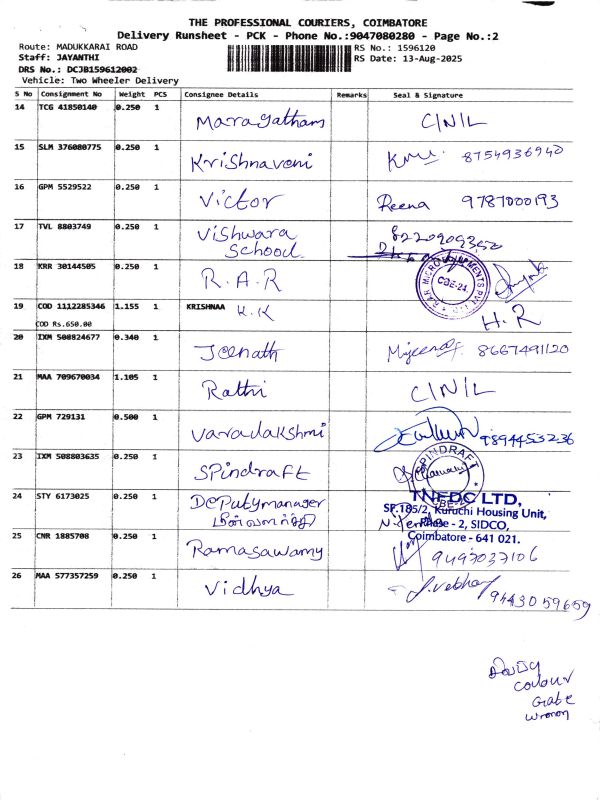 THE PROFESSIONAL COURIERS, COIMBATORE
Delivery Runsheet - PCK - Phone No.:9047080280 - Page No.:2
Route: MADUKKARAI ROAD RS No.: 1596120
Staff: JAYANTHI RS Date: 13-Aug-2025
DRS No.: DCJB159612002
Vehicle: Two Wheeler Delivery
S No Consignment No Weight PCS Consignee Details Remarks Seal & Signature
14 TCG 41850140 0.250 1 Maragatham C/N/L
15 SLM 376080775 0.250 1 Krishnaveni 8754936940
16 GPM 5529522 0.250 1 Victor Reena 9787000193
17 TVL 8803749 0.250 1 Vishwara 8220909350
School
18 KRR 30144505 0.250 1 R.A.R CBE-24.
19 COD 1112285346 1.155 1 KRISHNAA K.K H.R
COD Rs.650.00
20 IXM 500824677 0.340 1 Jeenath 8667491120
21 MAA 709670034 1.105 1 Rathi C/N/L
22 GPM 729131 0.500 1 Varadakshmi 9894453236
23 IXM 508803635 0.250 1 SPindraft SPINDRAFT
24 STY 6173025 0.250 1 DePutymanager TNEDC LTD,
மின்வளர்ச்சி SF.185/2, Kuruchi Housing Unit,
Phase - 2, SIDCO,
Coimbatore - 641 021.
25 CNR 1885708 0.250 1 Ramasawamy 9497037106
26 MAA 577357259 0.250 1 Vidhya 9443059659
colour